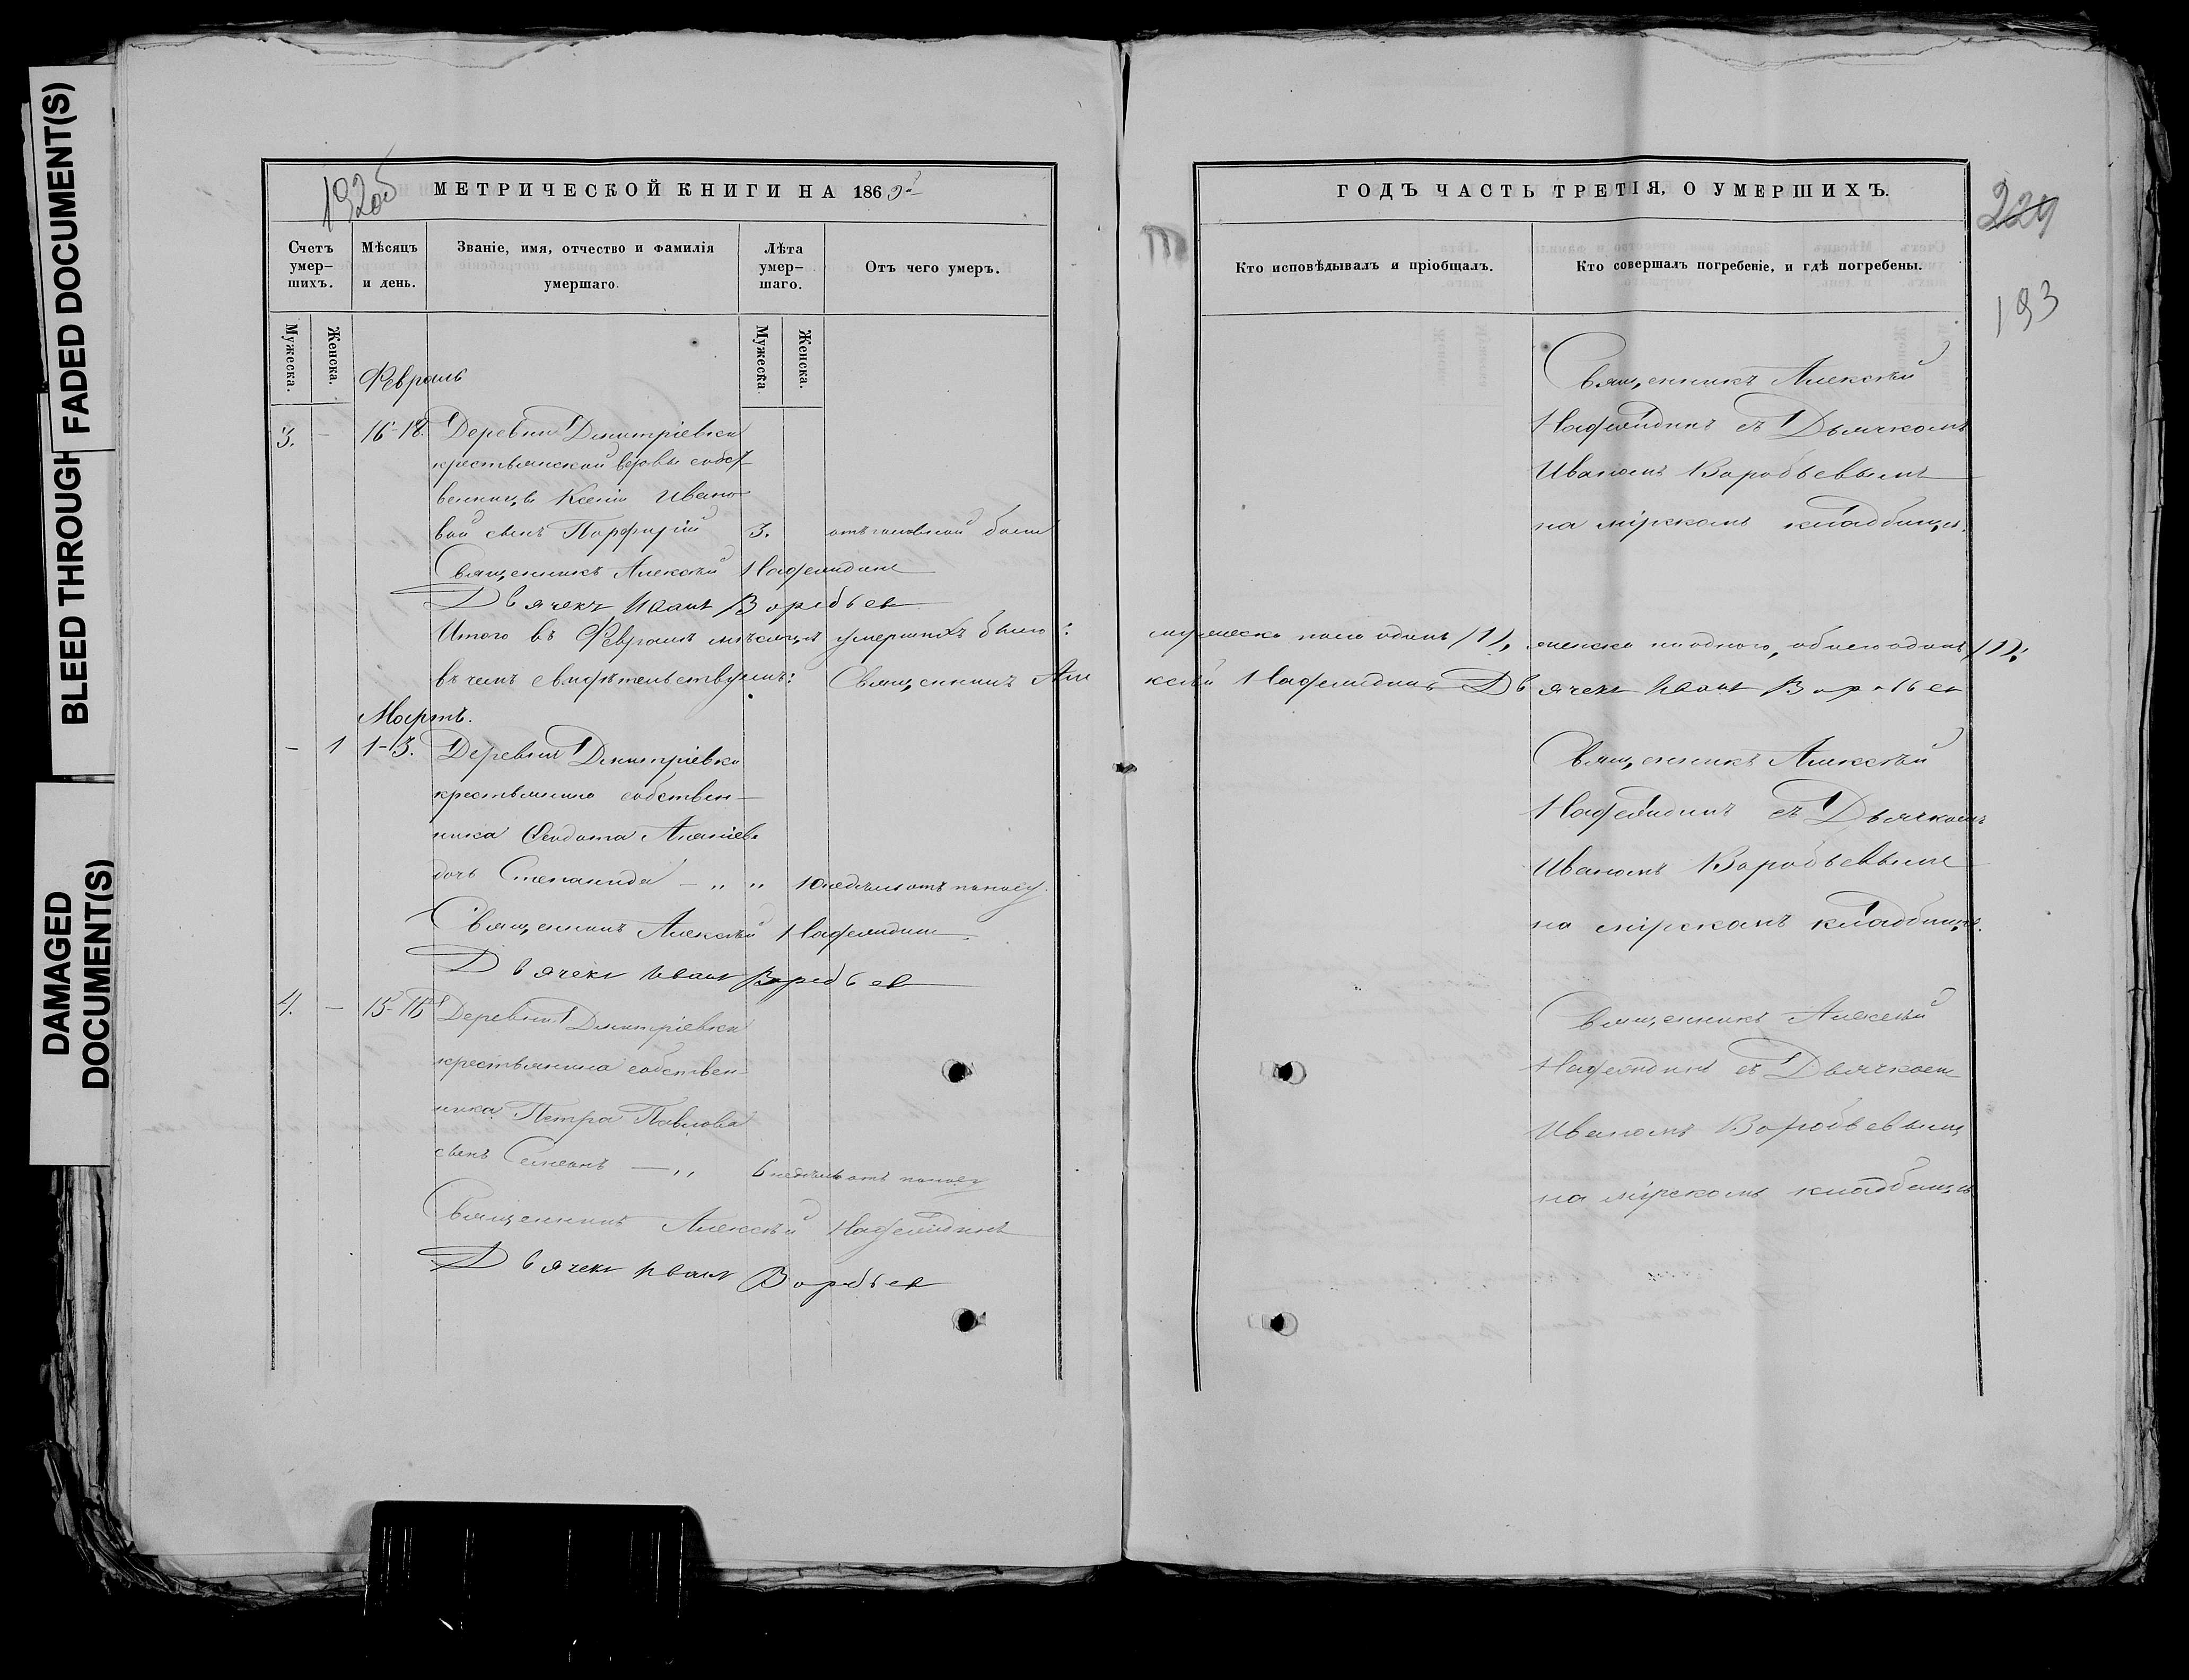 DAMAGED DOCUMENT(S)
BLEED THROUGH
FADED DOCUMENT(S)
192об
МЕТРИЧЕСКОЙ КНИГИ НА 186
Счетъ умер-шихъ.
Мѣсяцъ и день.
Званіе, имя, отчество и фамилія умершаго.
Лѣта умер-шаго.
Отъ чего умеръ.
Мужеска.
Женска.
Мужеска
Женска.
Февраль
3. — 16-18. Деревни Дмитріевки
крестьянской вдовы собст
венницы Ксеніи Ивано
вой сынъ Порфирій 3. отъ головной боли
Священникъ Алексѣй
Дьячекъ Иванъ Воробьев
Итого въ Февралѣ мѣсяцѣ умершихъ было:
въ чемъ свидѣтельствуемъ: Священникъ Але
Мартъ.
— 1 1-3. Деревни Дмитріевки
крестьянина собствен—
ника Феодота
дочь Степанида — „ „ 10 недѣль отъ поносу
Священникъ Алексѣй
Дьячекъ Иванъ Воробьев
4. — 15- Деревни Дмитріевки
крестьянина собствен
ника Петра Павлова
сынъ Симеонъ — „ 6 недѣль отъ поносу
Священникъ Алексѣй
Дьячекъ Иванъ Воробьев
ГОДЪ ЧАСТЬ ТРЕТІЯ, О УМЕРШИХЪ.
229
193
Кто исповѣдывалъ и пріобщалъ.
Кто совершалъ погребеніе, и гдѣ погребены.
Священникъ Алексѣй
съ Дьячкомъ
Иваномъ Воробьевымъ
на мірскомъ кладбищѣ.
мужеска пола одинъ /1/, женска ни одного, обоего одинъ /1/:
ксѣй Дьячекъ Иванъ Воробьев
Священникъ Алексѣй
съ Дьячкомъ
Иваномъ Воробьевымъ
на мірскомъ кладбищѣ.
Священникъ Алексѣй
съ Дьячкомъ
Иваномъ Воробьевымъ
на мірскомъ кладбищѣ